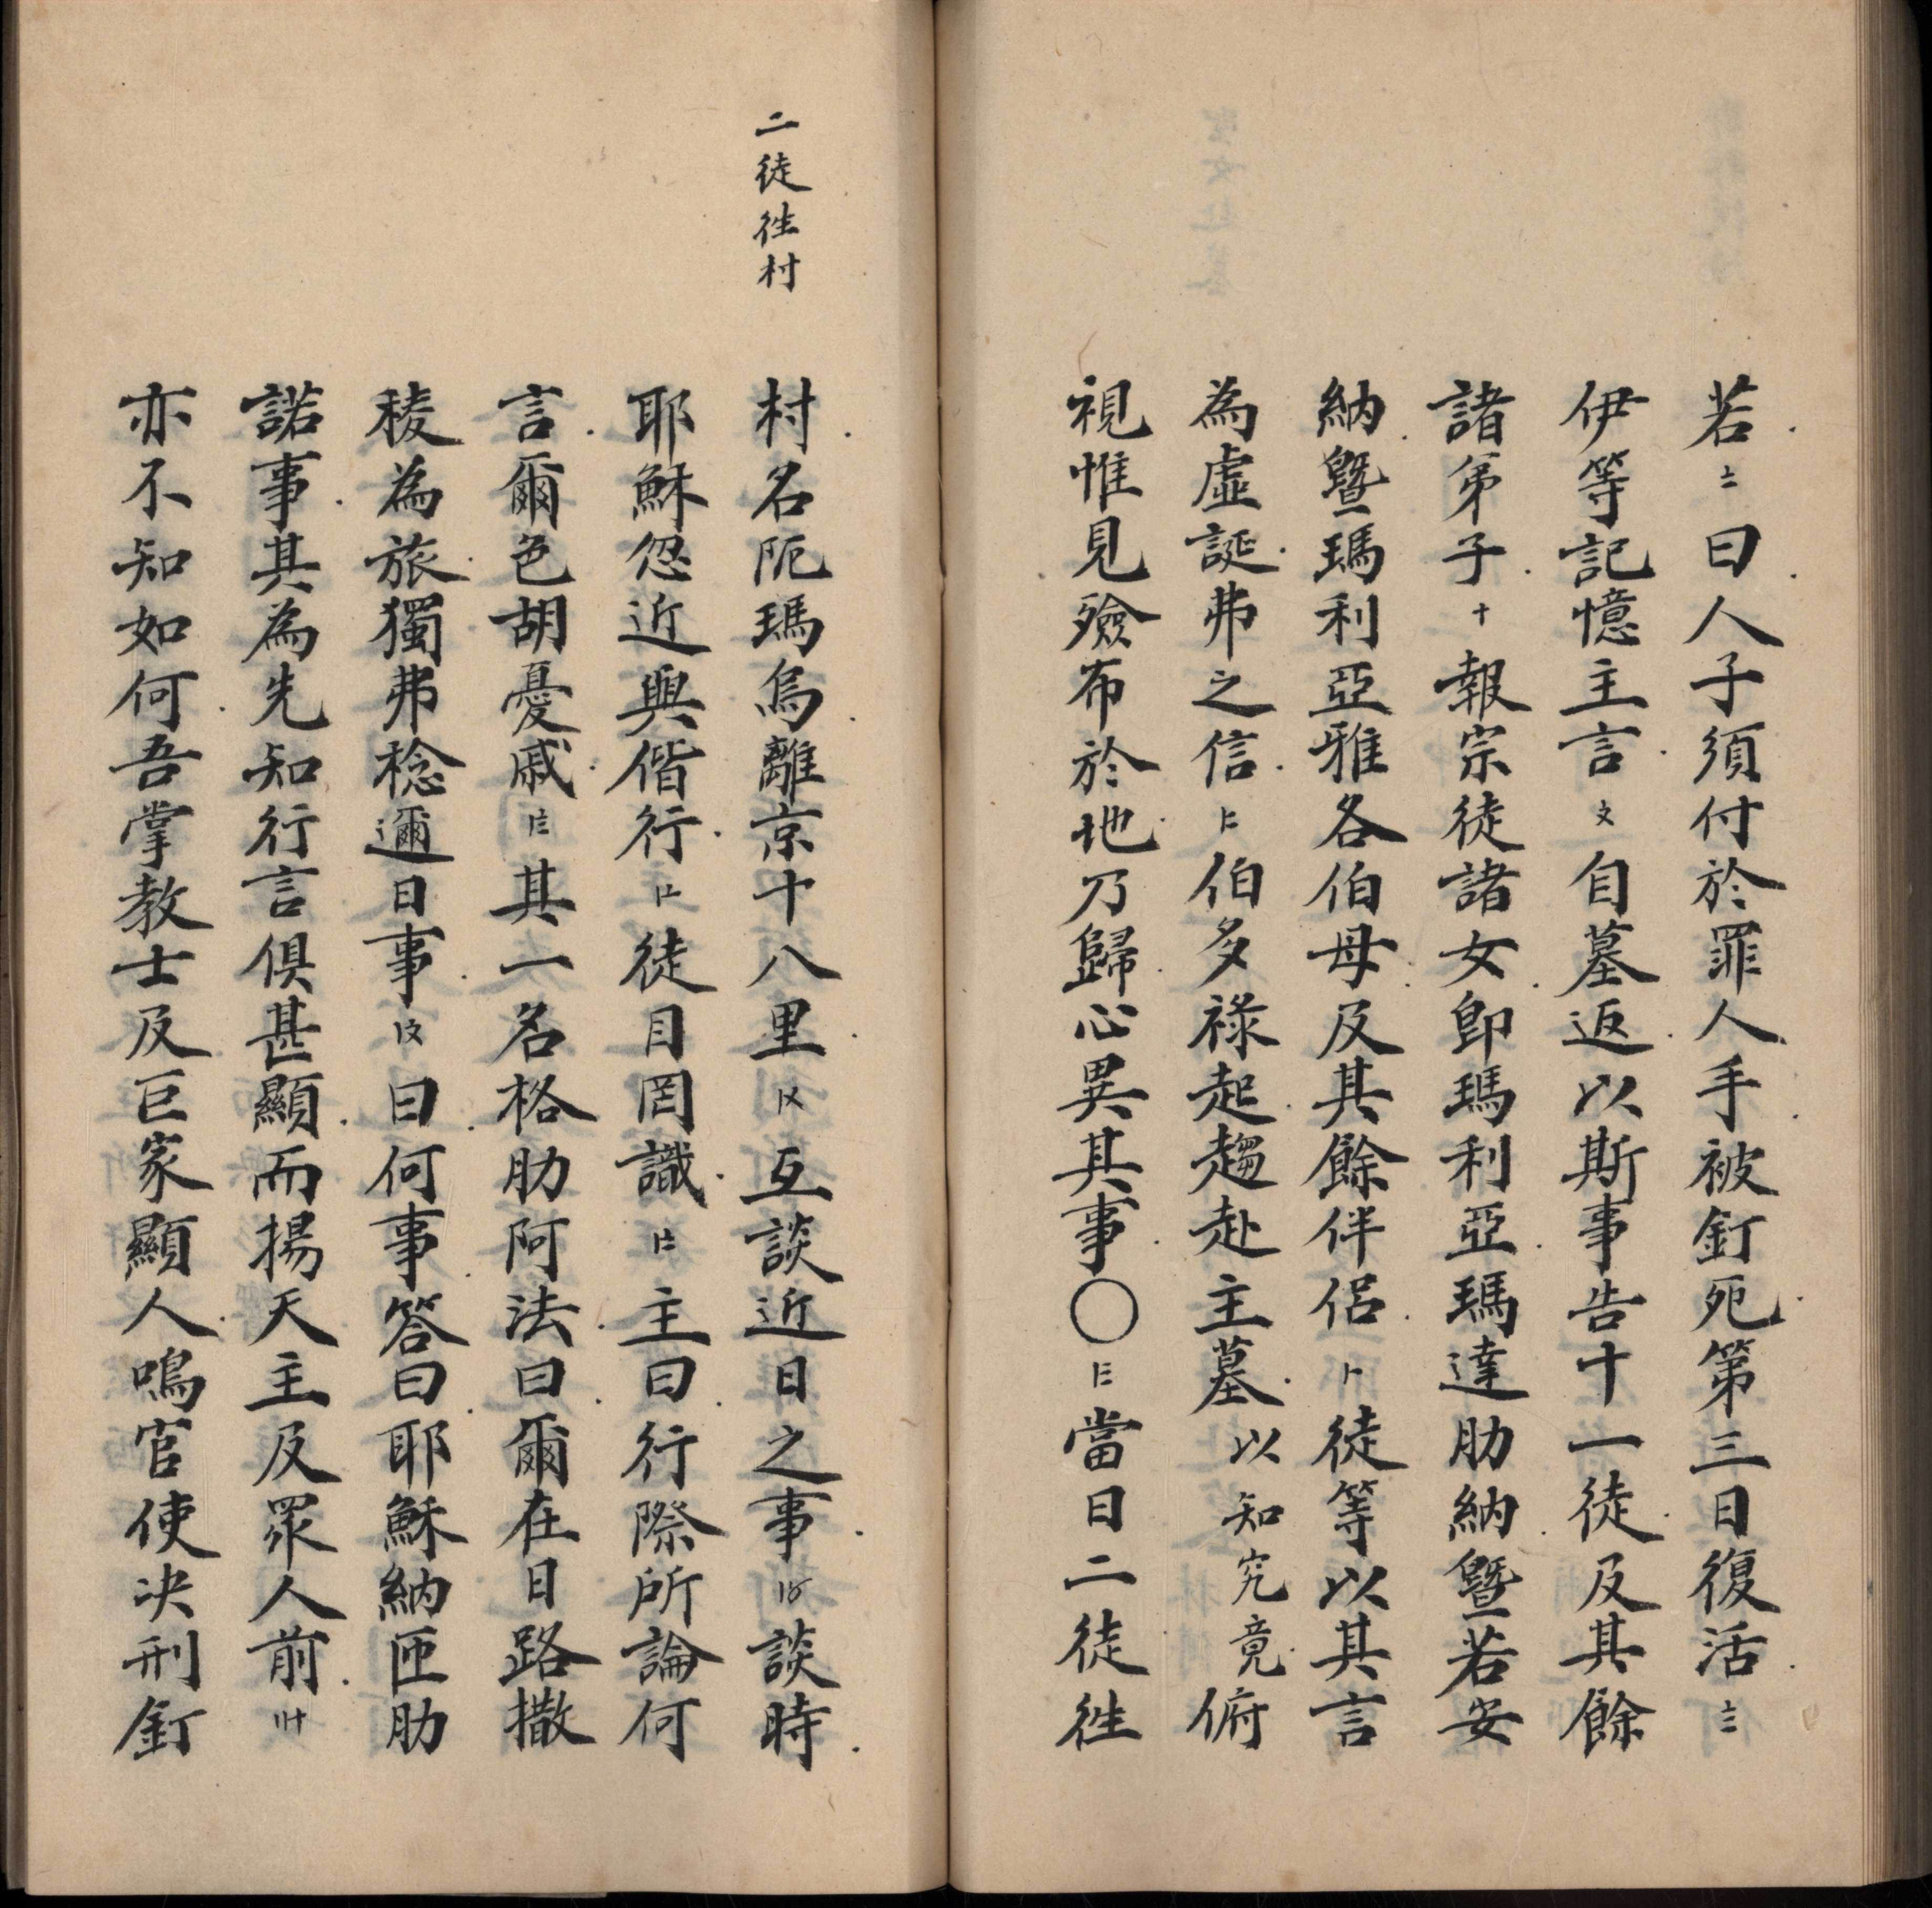 若〧曰人子須付於罪人手被釘死第三日復活〨
伊等記憶主言〩自墓返以斯事告十一徒及其餘
諸弟子十報宗徒諸女即瑪利亞瑪達肋納暨若安
納暨瑪利亞雅各伯母及其餘伴侶徒等以其言
為虛誕弗之信伯多祿起趨赴主墓以知究竟俯
視惟見殮布於地乃歸心異其事〇當日二徒徃
二徒徃村
村名阨瑪烏離京十八里互談近日之事談時
耶穌忽近與偕行徒目罔識主曰行際所論何
言爾色胡憂戚其一名格肋阿法曰爾在日路撒
稜為旅獨弗稔邇日事曰何事答曰耶穌納匝肋
諾事其為先知行言俱甚顯而揚天主及眾人前
亦不知如何吾掌教士及巨家顯人鳴官使决刑釘